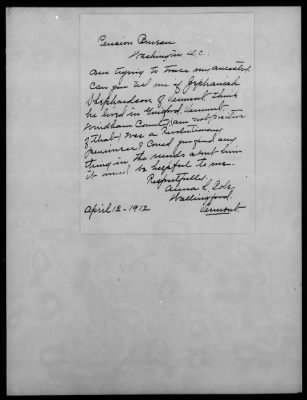 Pension Bureau
Washington, D.C.
Am trying to trace my ancestry
Can you tell me if Zephaniah
Shephardson of Vermont, think
he lived in Guilford, Vermont
Windham County (am not positive
of that) was a Revolutionary
pensioner? Could you find any
thing in the records about him
it would be helpful to me.
Respectfully,
Anna L. Cole
Wallingford,
Vermont.
April 12-1912